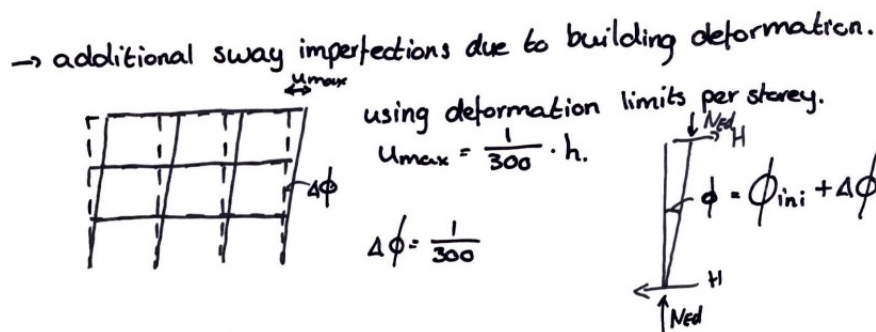 → additional sway imperfections due to building deformation.
umax
using deformation limits per storey.
umax = 1/300 · h.
Δϕ
Δϕ = 1/300
NEd
H
ϕ = ϕini + Δϕ
H
NEd